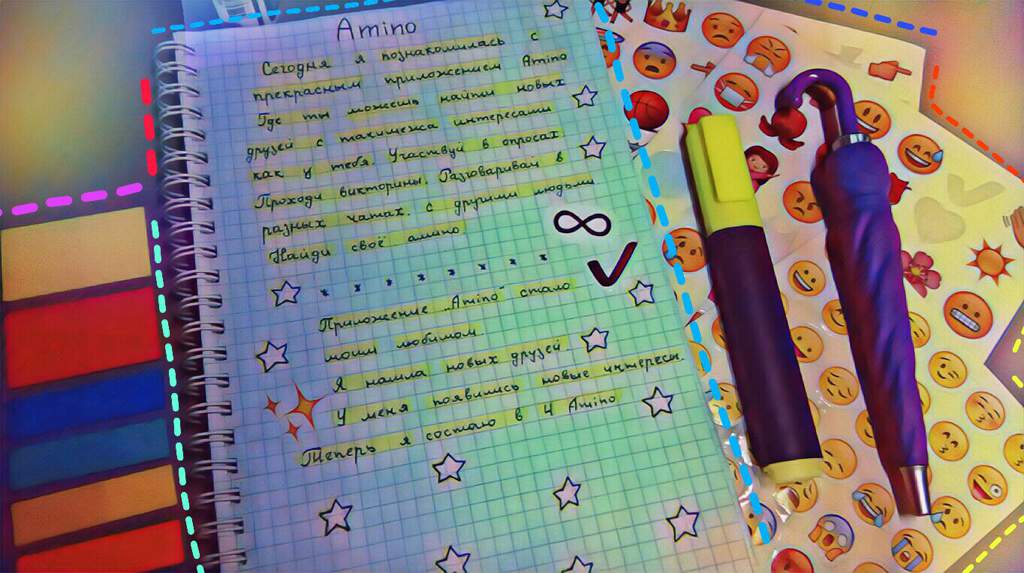 Amino
Сегодня я познакомилась с
прекрасным приложением Amino
Где ты можешь найти новых
друзей с такимежа интересами
как у тебя. Участвуй в опросах
Проходи викторины. Разговаривай в
разных чатах. с другими людьми
Найди своё амино
Приложение „Amino" стало
моим любимом
Я нашла новых друзей.
У меня появились новые интересы.
Теперь я состою в 4 Amino